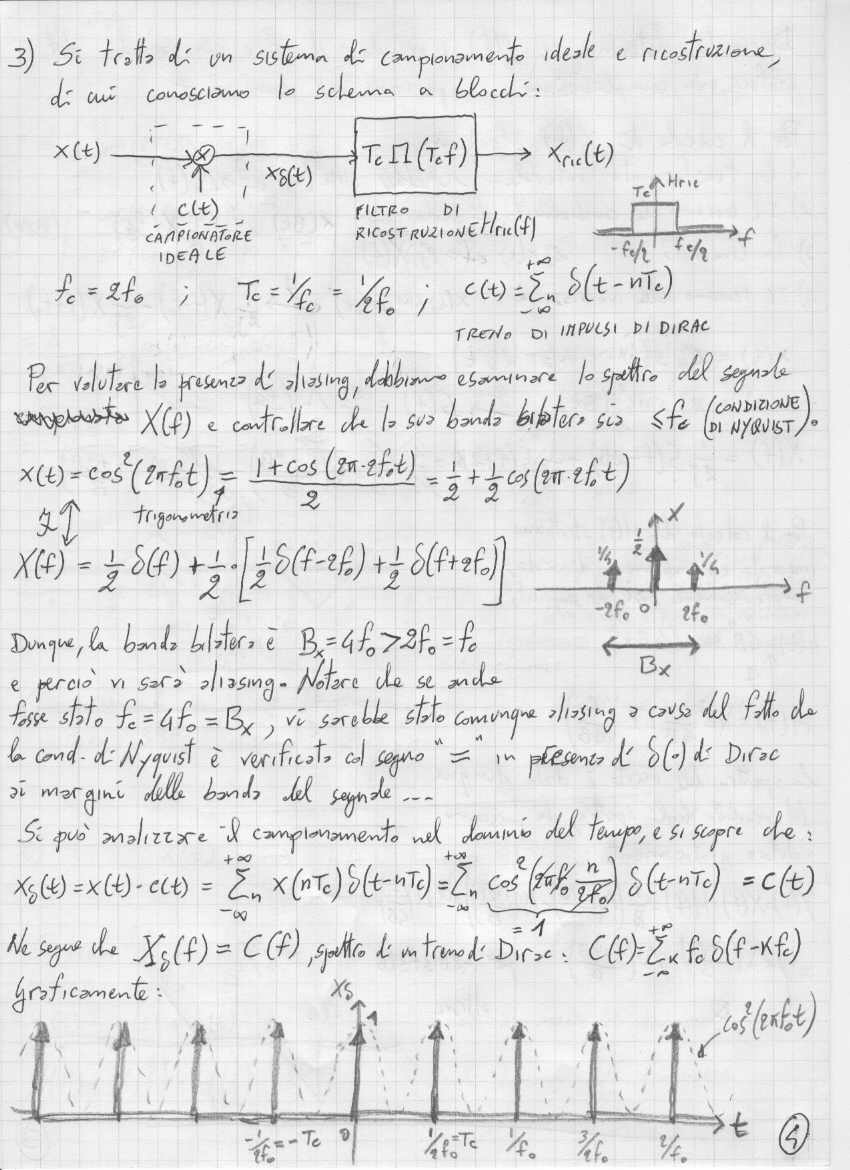 3) Si tratta di un sistema di campionamento ideale e ricostruzione,
di cui conosciamo lo schema a blocchi:
x(t) × xδ(t) Tc Π(Tc f) xric(t)
c(t)
CAMPIONATORE
IDEALE
FILTRO DI
RICOSTRUZIONE Hric(f)
Tc Hric
-fc/2 fc/2 f
fc = 2f₀ ; Tc = 1/fc = 1/2f₀ ; c(t) = Σn δ(t-nTc)
+∞
-∞
TRENO DI IMPULSI DI DIRAC
Per valutare la presenza di aliasing, dobbiamo esaminare lo spettro del segnale
X(f) e controllare che la sua banda bilatera sia ≤ fc (CONDIZIONE DI NYQUIST).
x(t) = cos²(2πf₀t) = (1+cos(2π·2f₀t))/2 = 1/2 + 1/2 cos(2π·2f₀t)
trigonometria
ℱ ↕
X(f) = 1/2 δ(f) + 1/2·[1/2 δ(f-2f₀) + 1/2 δ(f+2f₀)]
X
1/4 1/2 1/4
-2f₀ 0 2f₀ f
Bx
Dunque, la banda bilatera è Bx = 4f₀ > 2f₀ = fc
e perciò vi sarà aliasing. Notare che se anche
fosse stato fc = 4f₀ = Bx, vi sarebbe stato comunque aliasing a causa del fatto che
la cond. di Nyquist è verificata col segno "=" in presenza di δ(·) di Dirac
ai margini della banda del segnale ...
Si può analizzare il campionamento nel dominio del tempo, e si scopre che:
xδ(t) = x(t)·c(t) = Σn x(nTc) δ(t-nTc) = Σn cos²(2πf₀ n/2f₀) δ(t-nTc) = c(t)
+∞ +∞
-∞ -∞
= 1
Ne segue che Xδ(f) = C(f), spettro di un treno di Dirac: C(f) = Σk fc δ(f-kfc)
+∞
-∞
Graficamente:
xδ
1
cos²(2πf₀t)
-1/2f₀ = -Tc 0 1/2f₀ = Tc 1/f₀ 3/2f₀ 2/f₀ t
4